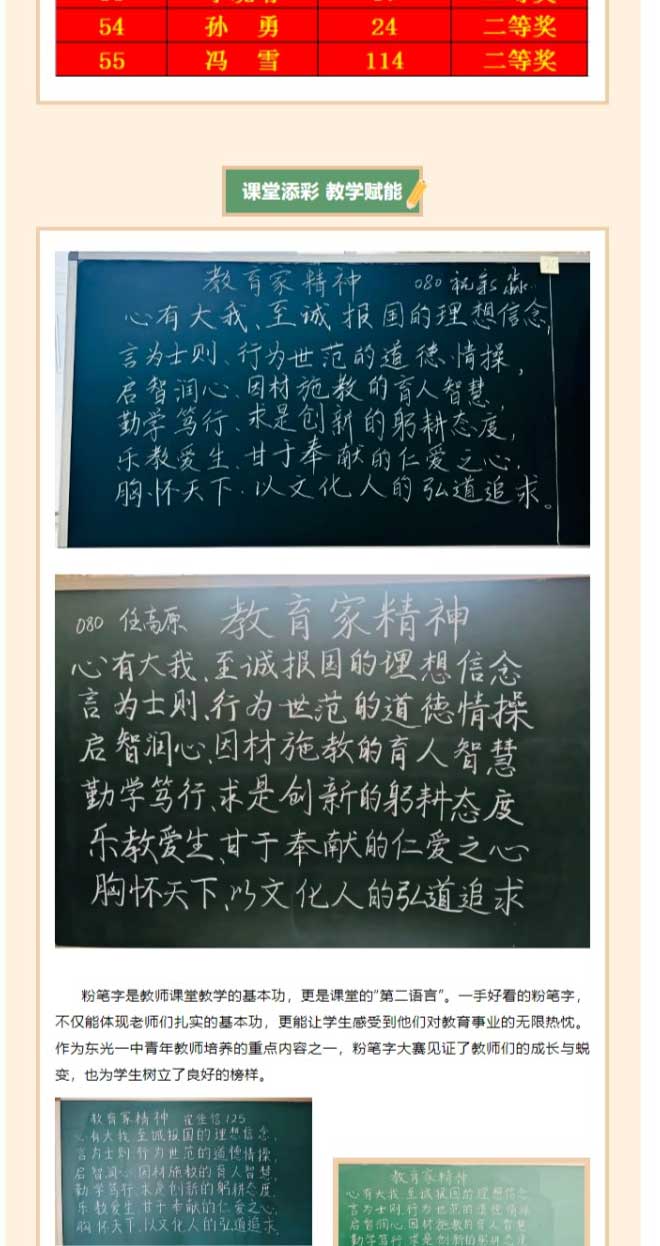 54 孙 勇 24 二等奖
55 冯 雪 114 二等奖
课堂添彩 教学赋能
教育家精神 080
心有大我、至诚报国的理想信念,
言为士则、行为世范的道德情操,
启智润心、因材施教的育人智慧,
勤学笃行、求是创新的躬耕态度,
乐教爱生、甘于奉献的仁爱之心,
胸怀天下、以文化人的弘道追求。
080 任高原 教育家精神
心有大我、至诚报国的理想信念
言为士则、行为世范的道德情操
启智润心、因材施教的育人智慧
勤学笃行、求是创新的躬耕态度
乐教爱生、甘于奉献的仁爱之心
胸怀天下、以文化人的弘道追求
粉笔字是教师课堂教学的基本功，更是课堂的“第二语言”。一手好看的粉笔字，
不仅能体现老师们扎实的基本功，更能让学生感受到他们对教育事业的无限热忱。
作为东光一中青年教师培养的重点内容之一，粉笔字大赛见证了教师们的成长与蜕
变，也为学生树立了良好的榜样。
教育家精神 125
心有大我、至诚报国的理想信念,
言为士则、行为世范的道德情操,
启智润心、因材施教的育人智慧,
勤学笃行、求是创新的躬耕态度,
乐教爱生、甘于奉献的仁爱之心,
胸怀天下、以文化人的弘道追求.
教育家精神
心有大我、至诚报国的理想信念
言为士则、行为世范的道德情操
启智润心、因材施教的育人智慧
勤学笃行、求是创新的躬耕态度